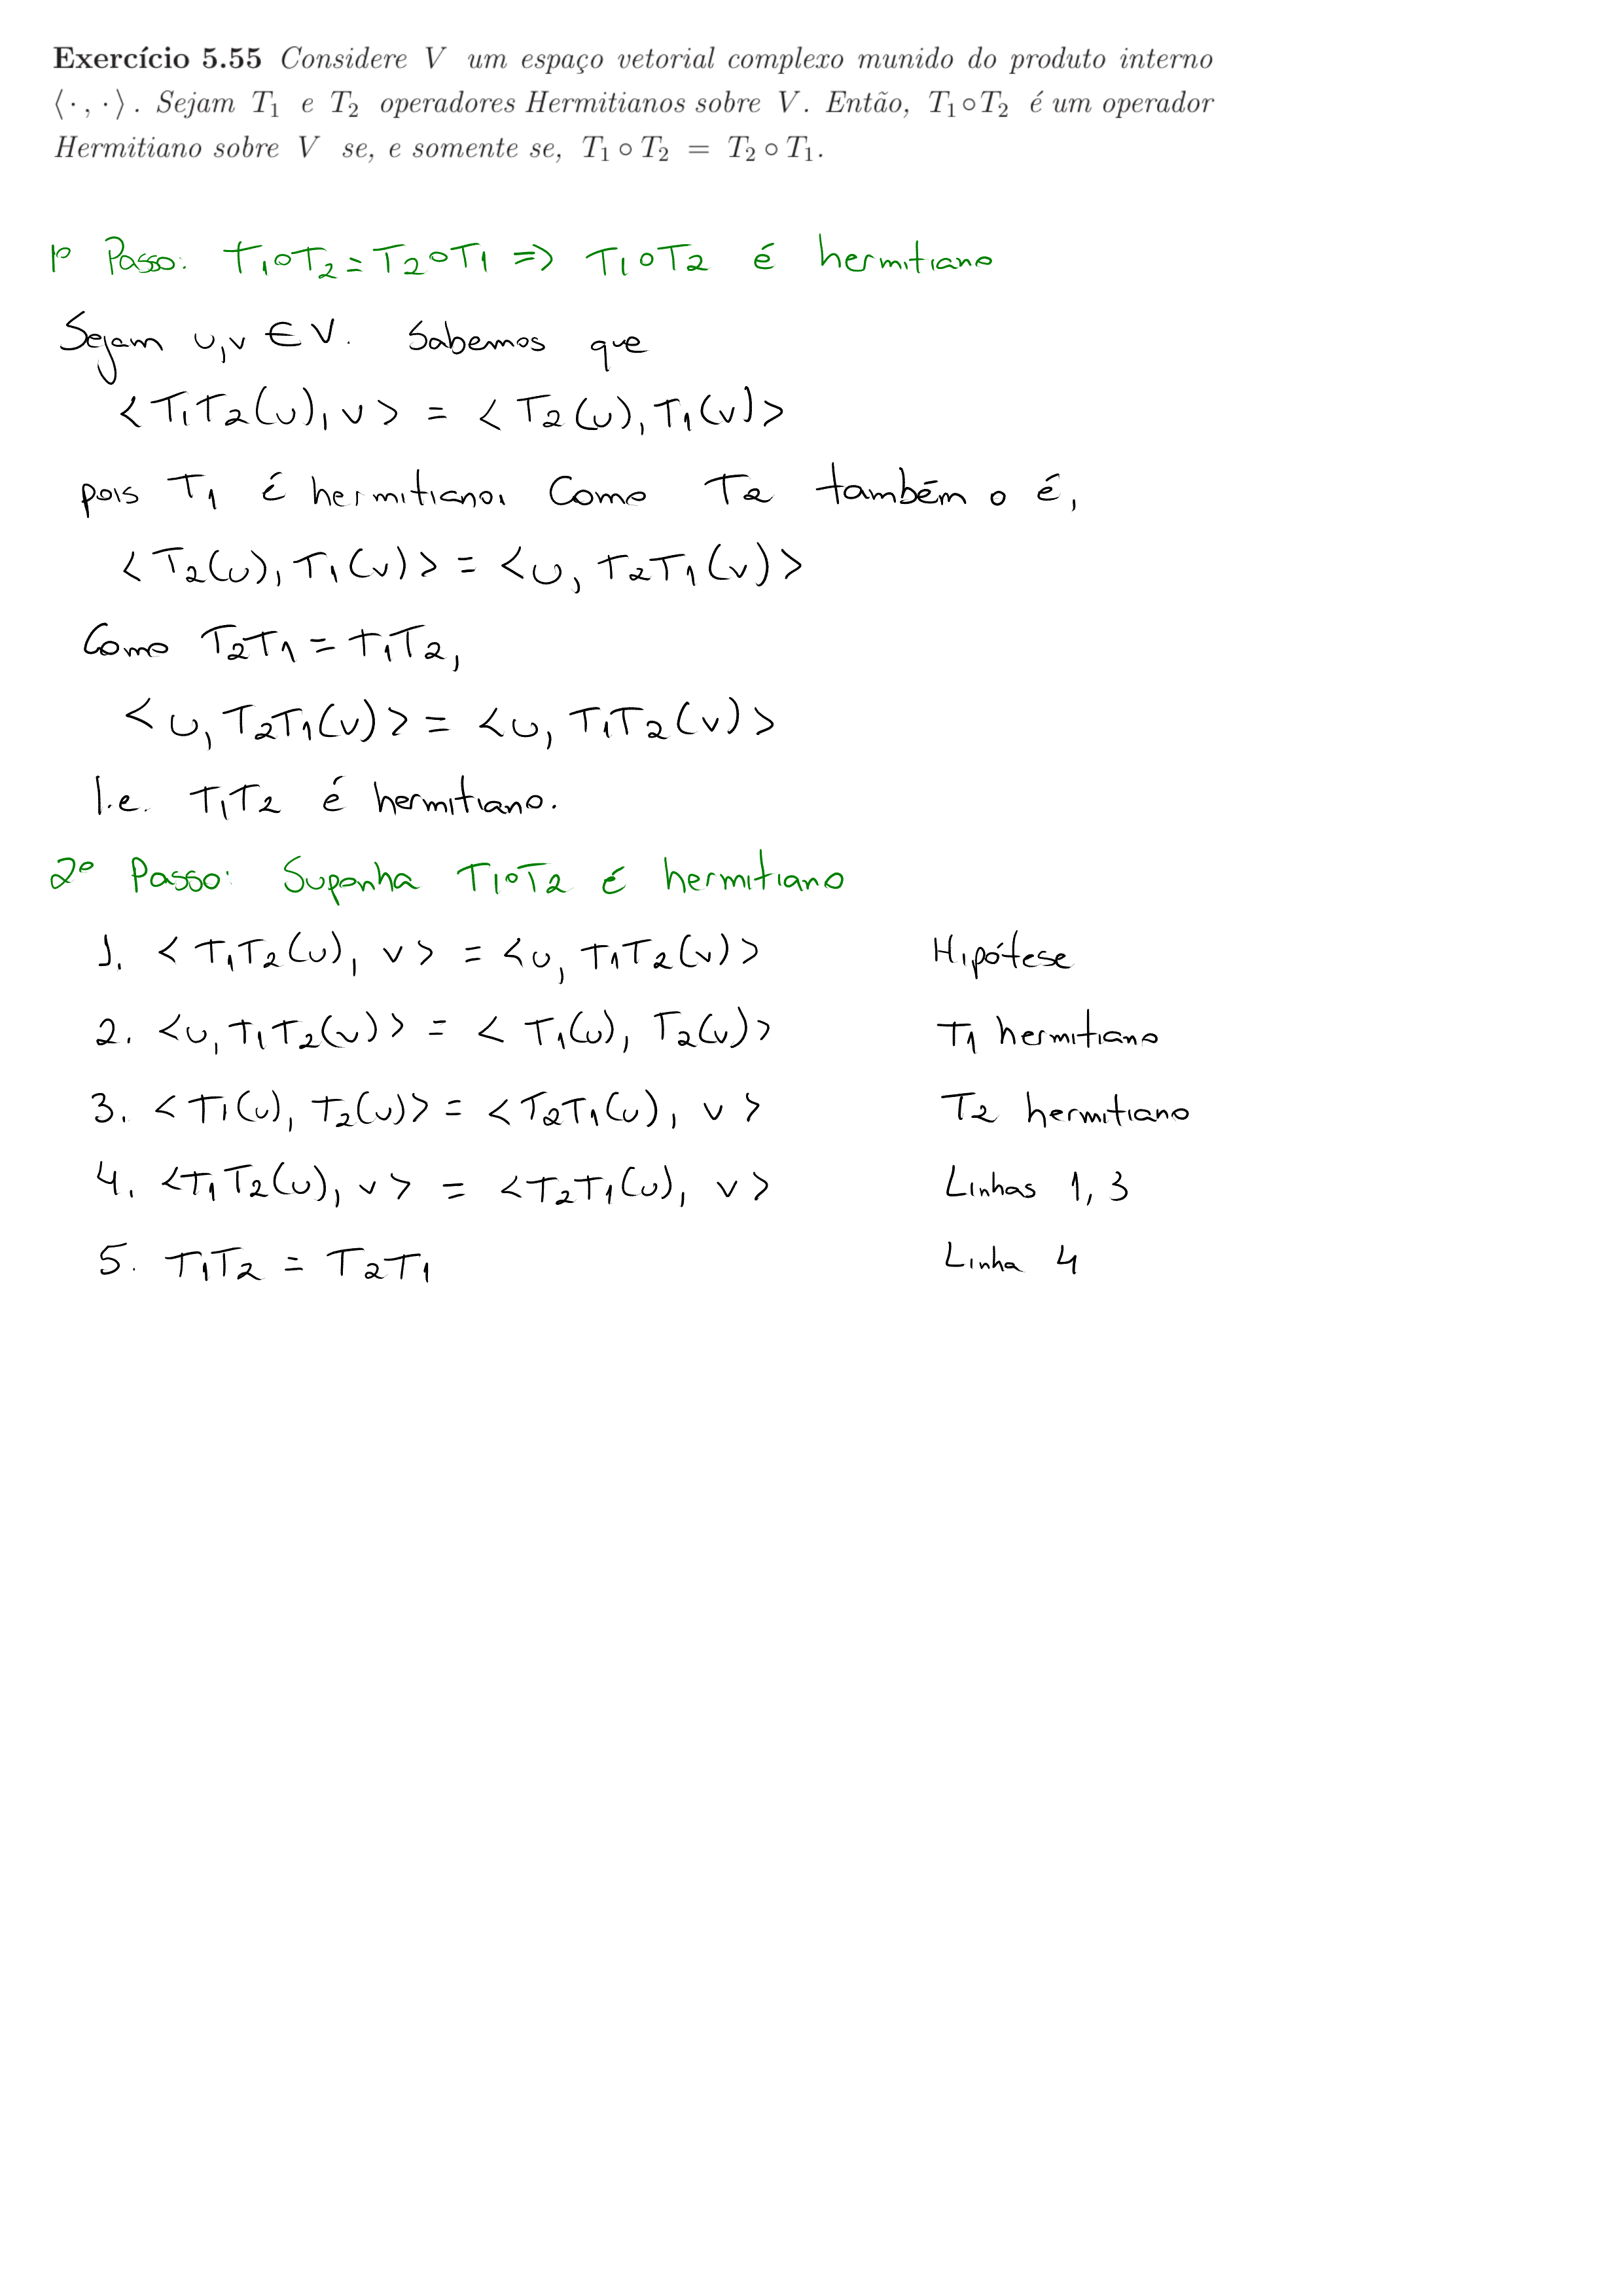 Exercício 5.55 Considere V um espaço vetorial complexo munido do produto interno
⟨ · , · ⟩ . Sejam T₁ e T₂ operadores Hermitianos sobre V . Então, T₁ ∘ T₂ é um operador
Hermitiano sobre V se, e somente se, T₁ ∘ T₂ = T₂ ∘ T₁.
1º Passo: T₁∘T₂ = T₂∘T₁ => T₁∘T₂ é hermitiano
Sejam u,v ∈ V. Sabemos que
<T₁T₂(u), v> = <T₂(u), T₁(v)>
pois T₁ é hermitiano. Como T₂ também o é,
<T₂(u), T₁(v)> = <u, T₂T₁(v)>
Como T₂T₁ = T₁T₂,
<u, T₂T₁(v)> = <u, T₁T₂(v)>
I.e. T₁T₂ é hermitiano.
2º Passo: Suponha T₁∘T₂ é hermitiano
1. <T₁T₂(u), v> = <u, T₁T₂(v)> Hipótese
2. <u, T₁T₂(v)> = <T₁(u), T₂(v)> T₁ hermitiano
3. <T₁(u), T₂(v)> = <T₂T₁(u), v> T₂ hermitiano
4. <T₁T₂(u), v> = <T₂T₁(u), v> Linhas 1, 3
5. T₁T₂ = T₂T₁ Linha 4